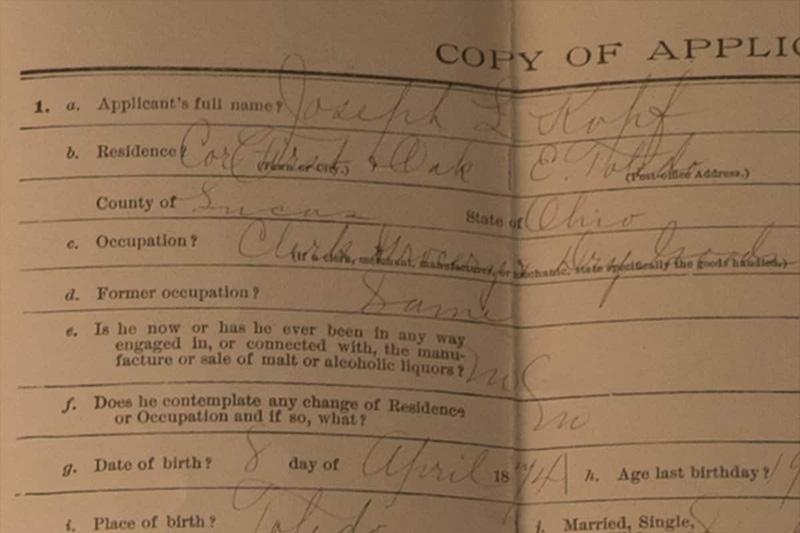 COPY OF APPLIC
1. a. Applicant's full name? Joseph L Kopf
b. Residence? Cor First & Oak E. Toledo
(Town or City.) (Post-office Address.)
County of Lucas State of Ohio
c. Occupation? Clerk Grocery & Dry Goods
(If a clerk, merchant, manufacturer, or mechanic, state specifically the goods handled.)
d. Former occupation? Same
e. Is he now or has he ever been in any way
engaged in, or connected with, the manu-
facture or sale of malt or alcoholic liquors? No
f. Does he contemplate any change of Residence
or Occupation and if so, what? No
g. Date of birth? 8 day of April 1874 h. Age last birthday? 19
i. Place of birth? Toledo j. Married, Single,